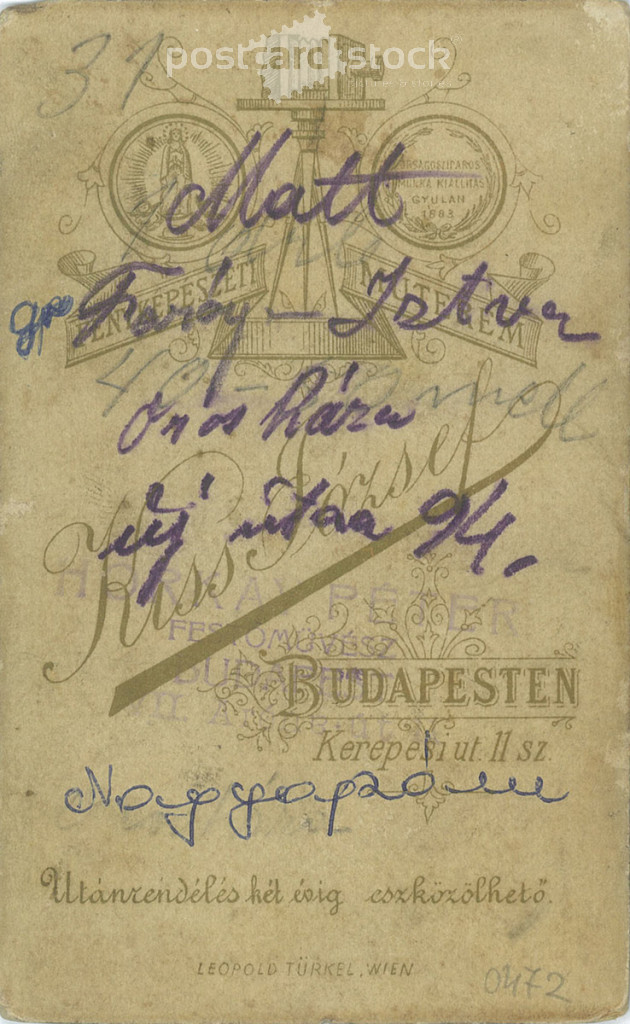 postcard stock
31
ORSÁGOS IPAROS
MUNKA KIÁLLITÁS
GYULÁN
1883
Matt
FÉNYKÉPÉSZETI MŰTEREM
Istver
40 - mell
Orosháza
Kiss József
új útca 94.
HORKAI PÉTER
FESTŐMŰVÉSZ
BUDAPEST
BUDAPESTEN
Kerepesi ut. 11 sz.
Nagyapám
Utánrendélés két évig eszközölhető.
LEOPOLD TÜRKEL, WIEN
0472